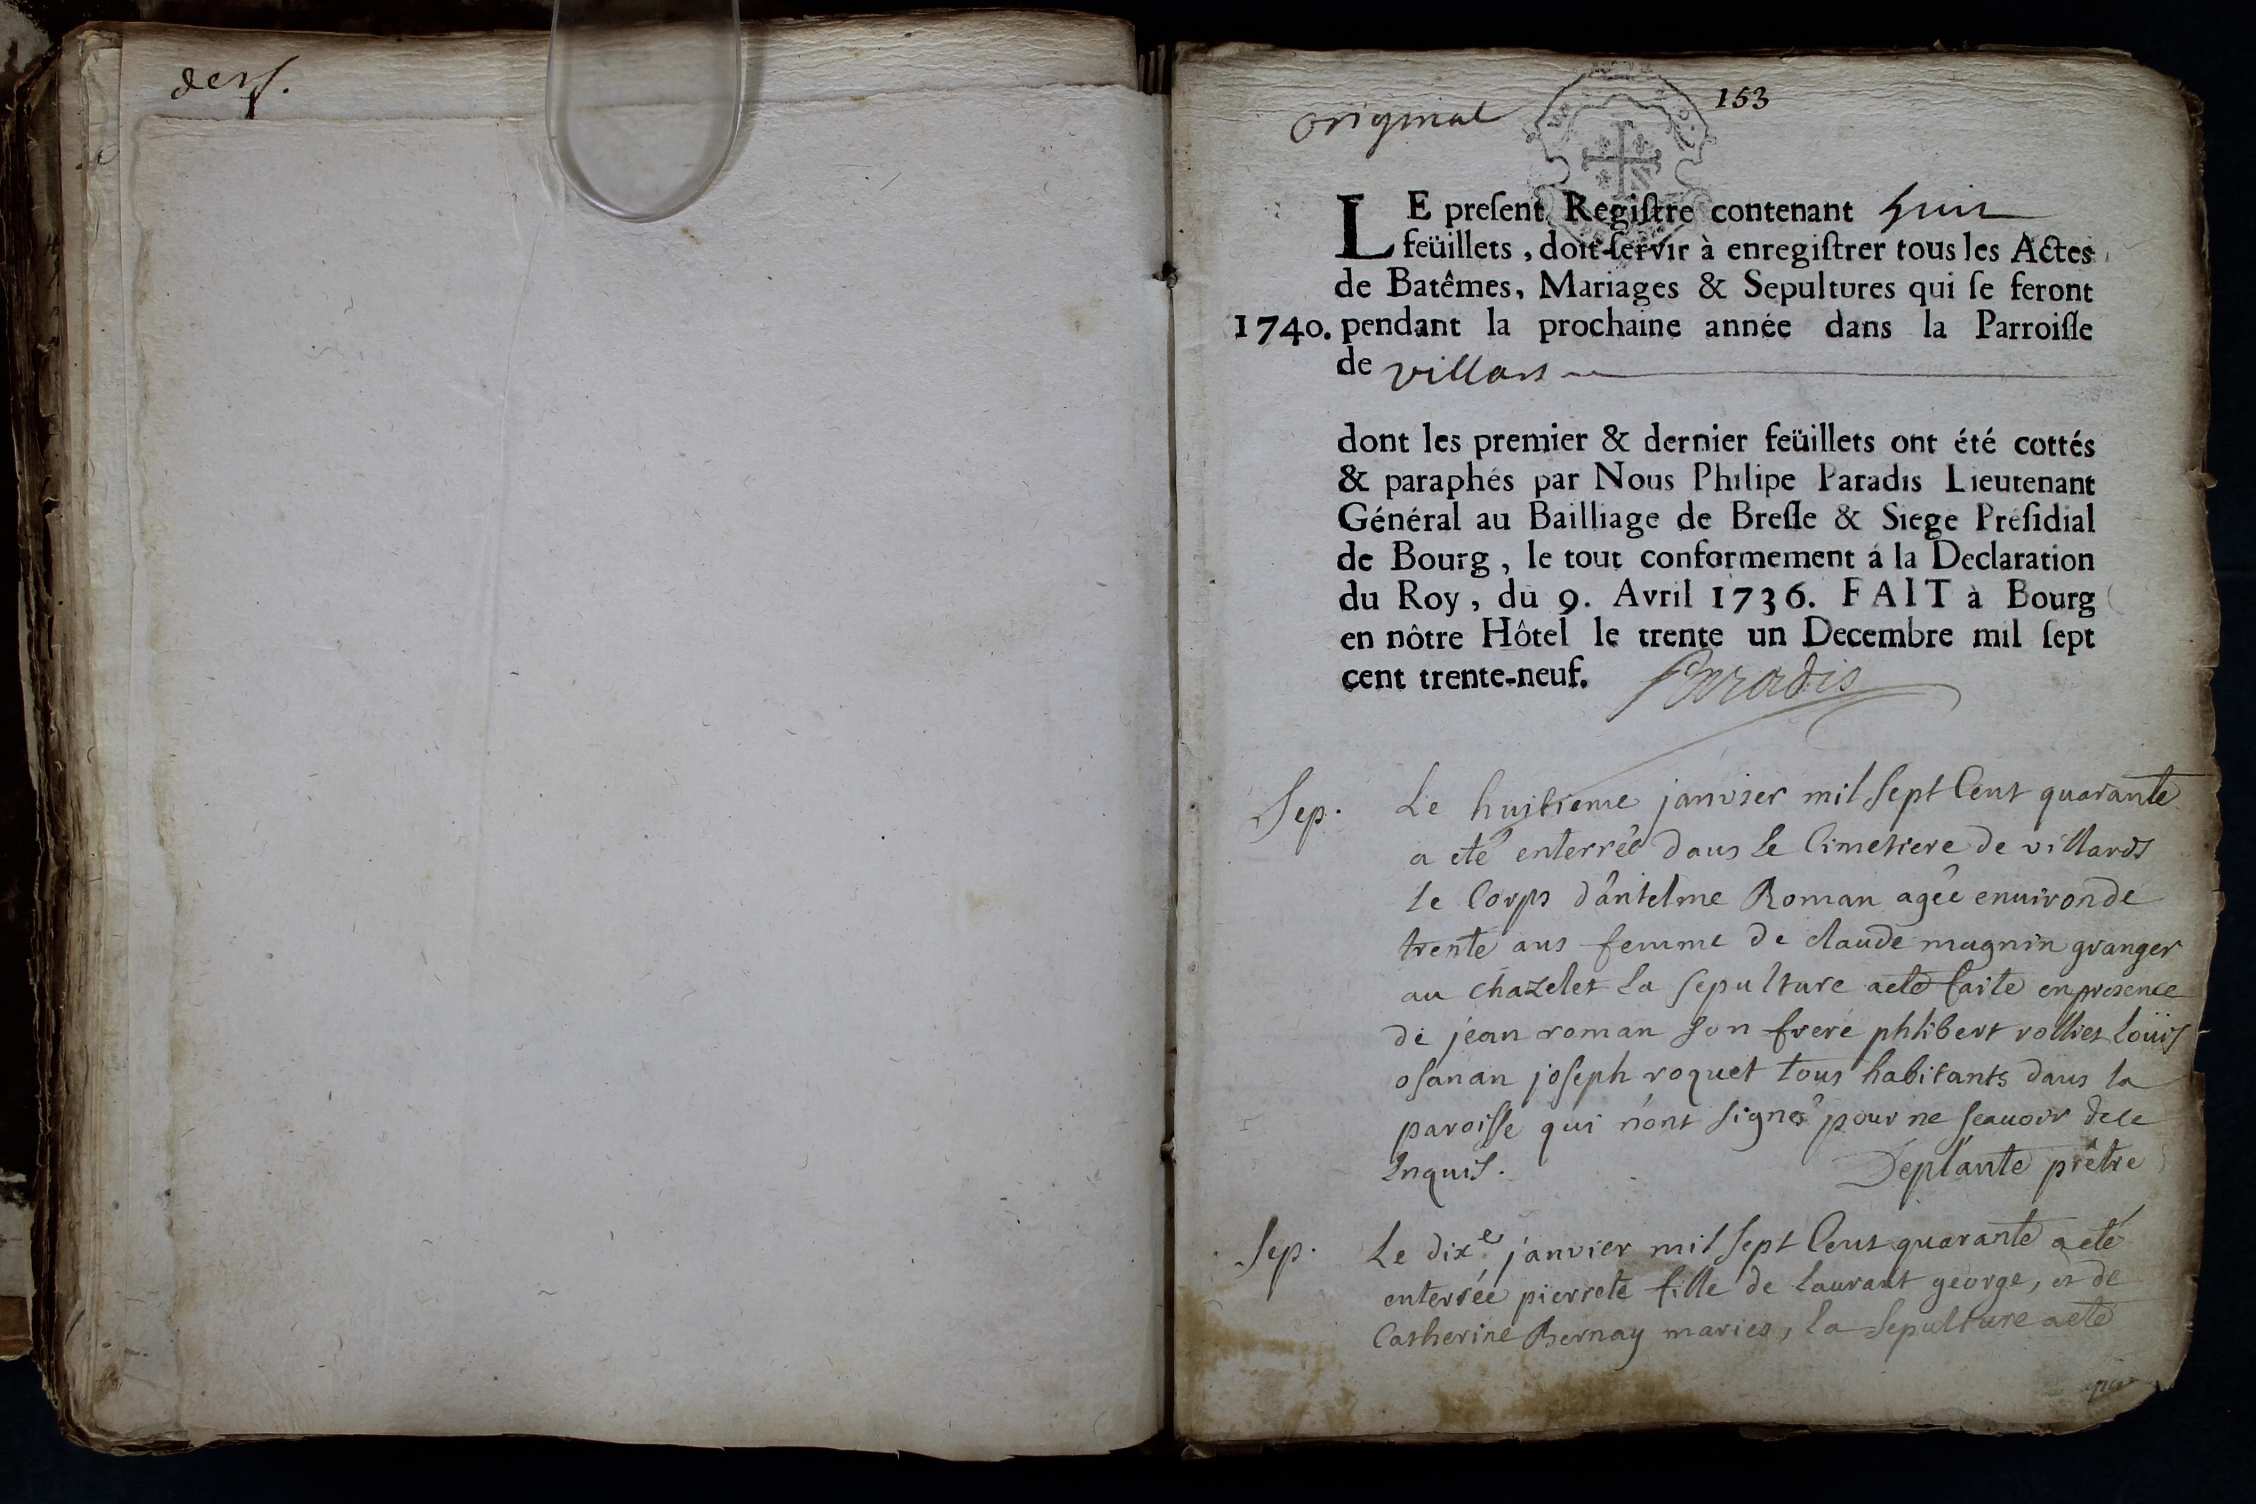 ders.
original
153
LE preſent Regiſtre contenant huit
feüillets, doit ſervir à enregiſtrer tous les Actes
de Batêmes, Mariages & Sepultures qui ſe feront
1740. pendant la prochaine année dans la Parroiſſe
de villars
dont les premier & dernier feüillets ont été cottés
& paraphés par Nous Philipe Paradis Lieutenant
Général au Bailliage de Breſſe & Siege Préſidial
de Bourg, le tout conformement á la Declaration
du Roy, du 9. Avril 1736. FAIT à Bourg
en nôtre Hôtel le trente un Decembre mil ſept
cent trente-neuf. Paradis
Sep. Le huitieme janvier mil sept Cent quarante
a eté enterrée dans le Cimetiere de villards
le Corps d'antelme Roman agée enuiron de
trente ans femme de claude mugnin granger
au chazelet la sepulture a eté faite en presence
de jean roman son frere phlibert rolliet loüis
osanan joseph roquet tous habitants dans la
paroisse qui n'ont signé pour ne scauoir de ce
Inquis. Deplante prêtre
Sep. Le dixe janvier mil sept Cent quarante a eté
enterrée pierrete fille de laurant george, et de
Catherine Bernay mariés, la sepulture a eté